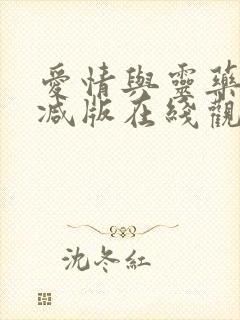 愛情與靈藥
減版在綫觀
沈冬紅